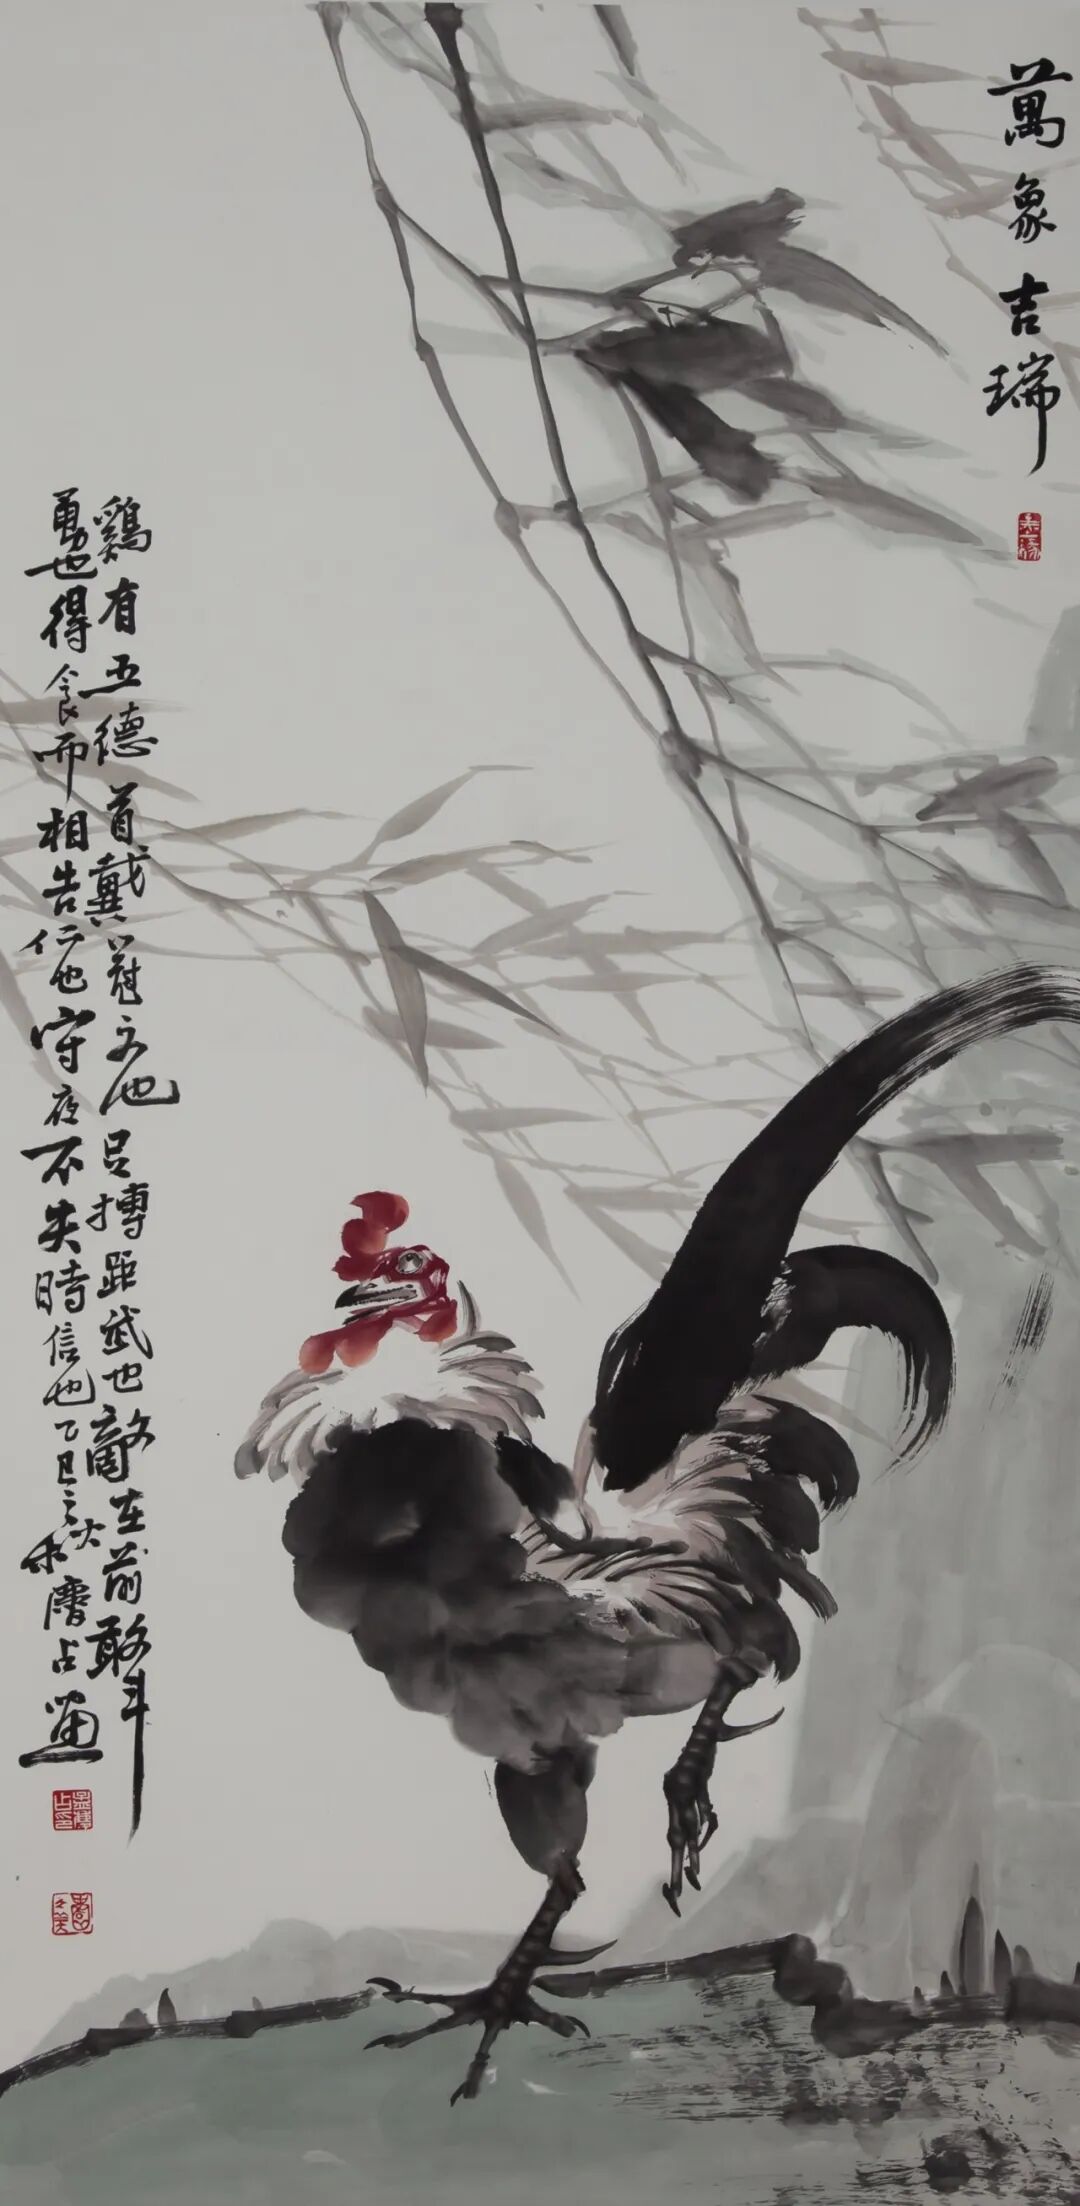 萬象吉瑞
鷄有五德首戴冠文也足搏距武也敵在前敢斗
勇也得食而相告仁也守夜不失時信也乙巳之秋膺占畫